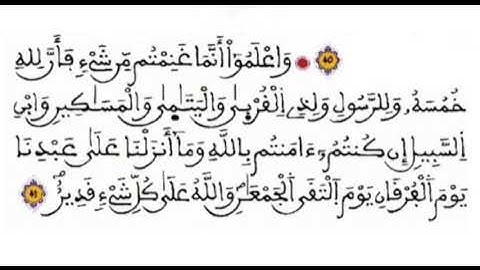 40 وَاعْلَمُوٓاْ أَنَّمَا غَنِمْتُم مِّن شَيْءٍ فَأَنَّ لِلهِ
خُمُسَهُۥ وَلِلرَّسُولِ وَلِذِي اِلْقُرْبَىٰ وَالْيَتَٰمَىٰ وَالْمَسَٰكِينِ وَابْنِ
اِلسَّبِيلِ إِن كُنتُمُۥٓ ءَامَنتُم بِاللَّهِ وَمَآ أَنزَلْنَا عَلَىٰ عَبْدِنَا
يَوْمَ اَلْفُرْقَانِ يَوْمَ اَلْتَقَى اَلْجَمْعَٰنِ وَاللَّهُ عَلَىٰ كُلِّ شَيْءٍ قَدِيرٌ 41